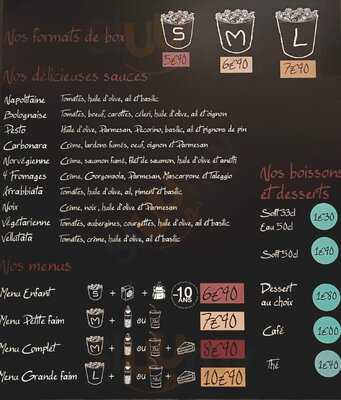 Nos formats de box
S M L
5€90 6€90 7€90
Nos délicieuses sauces
Napolitaine Tomates, huile d'olive, ail et basilic
Bolognaise Tomates, boeuf, carottes, céleri, huile d'olive, ail et oignon
Pesto Huile d'olive, Parmesan, Pecorino, basilic, ail et pignons de pin
Carbonara Crème, lardons fumés, oeuf, oignon et Parmesan
Norvégienne Crème, saumon fumé, filet de saumon, huile d'olive et aneth
4 Fromages Crème, Gorgonzola, Parmesan, Mascarpone et Taleggio
Arrabbiata Tomates, huile d'olive, ail, piment et basilic
Noix Crème, noix, huile d'olive et Parmesan
Végétarienne Tomates, aubergines, courgettes, huile d'olive, ail et basilic
Vellutata Tomates, crème, huile d'olive, ail et basilic
Nos menus
Menu Enfant S + + -10 ANS 6€90
Menu Petite faim M + ou 7€90
Menu Complet M + ou + 8€90
Menu Grande faim L + ou + 10€90
Nos boissons
et desserts
Soft 33cl
Eau 50cl
1€30
Soft 50cl 1€90
Dessert
au choix
1€80
Café 1€00
Thé 1€40